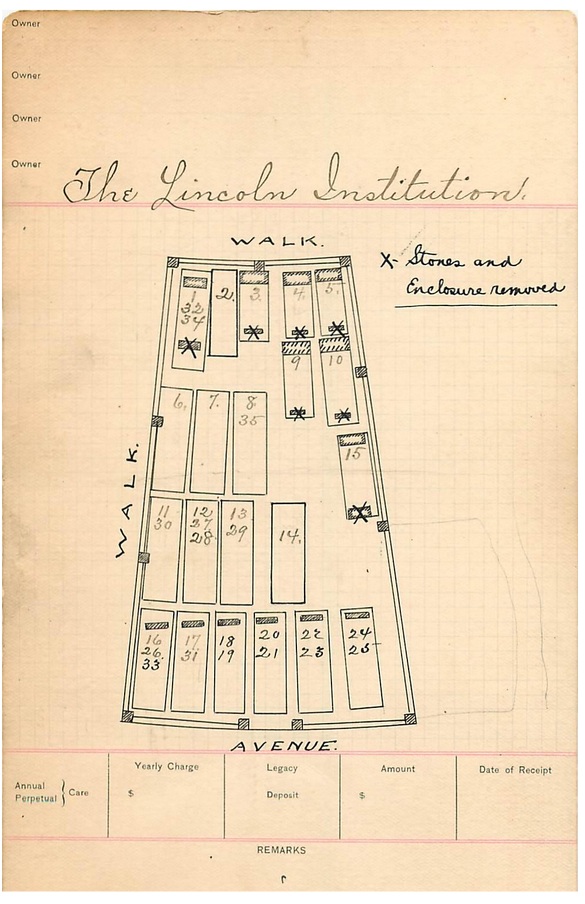 Owner
Owner
Owner
Owner
The Lincoln Institution.
WALK.
X- Stones and
Enclosure removed
1
32
34
2.
3.
4.
5.
9
10
6.
7.
8.
35
15
WALK.
11
30
12
27
28
13
29
14.
16
26.
33
17
31
18
19
20
21
22
23
24
25
AVENUE.
Annual
Perpetual } Care
Yearly Charge
$
Legacy
Deposit
Amount
$
Date of Receipt
REMARKS